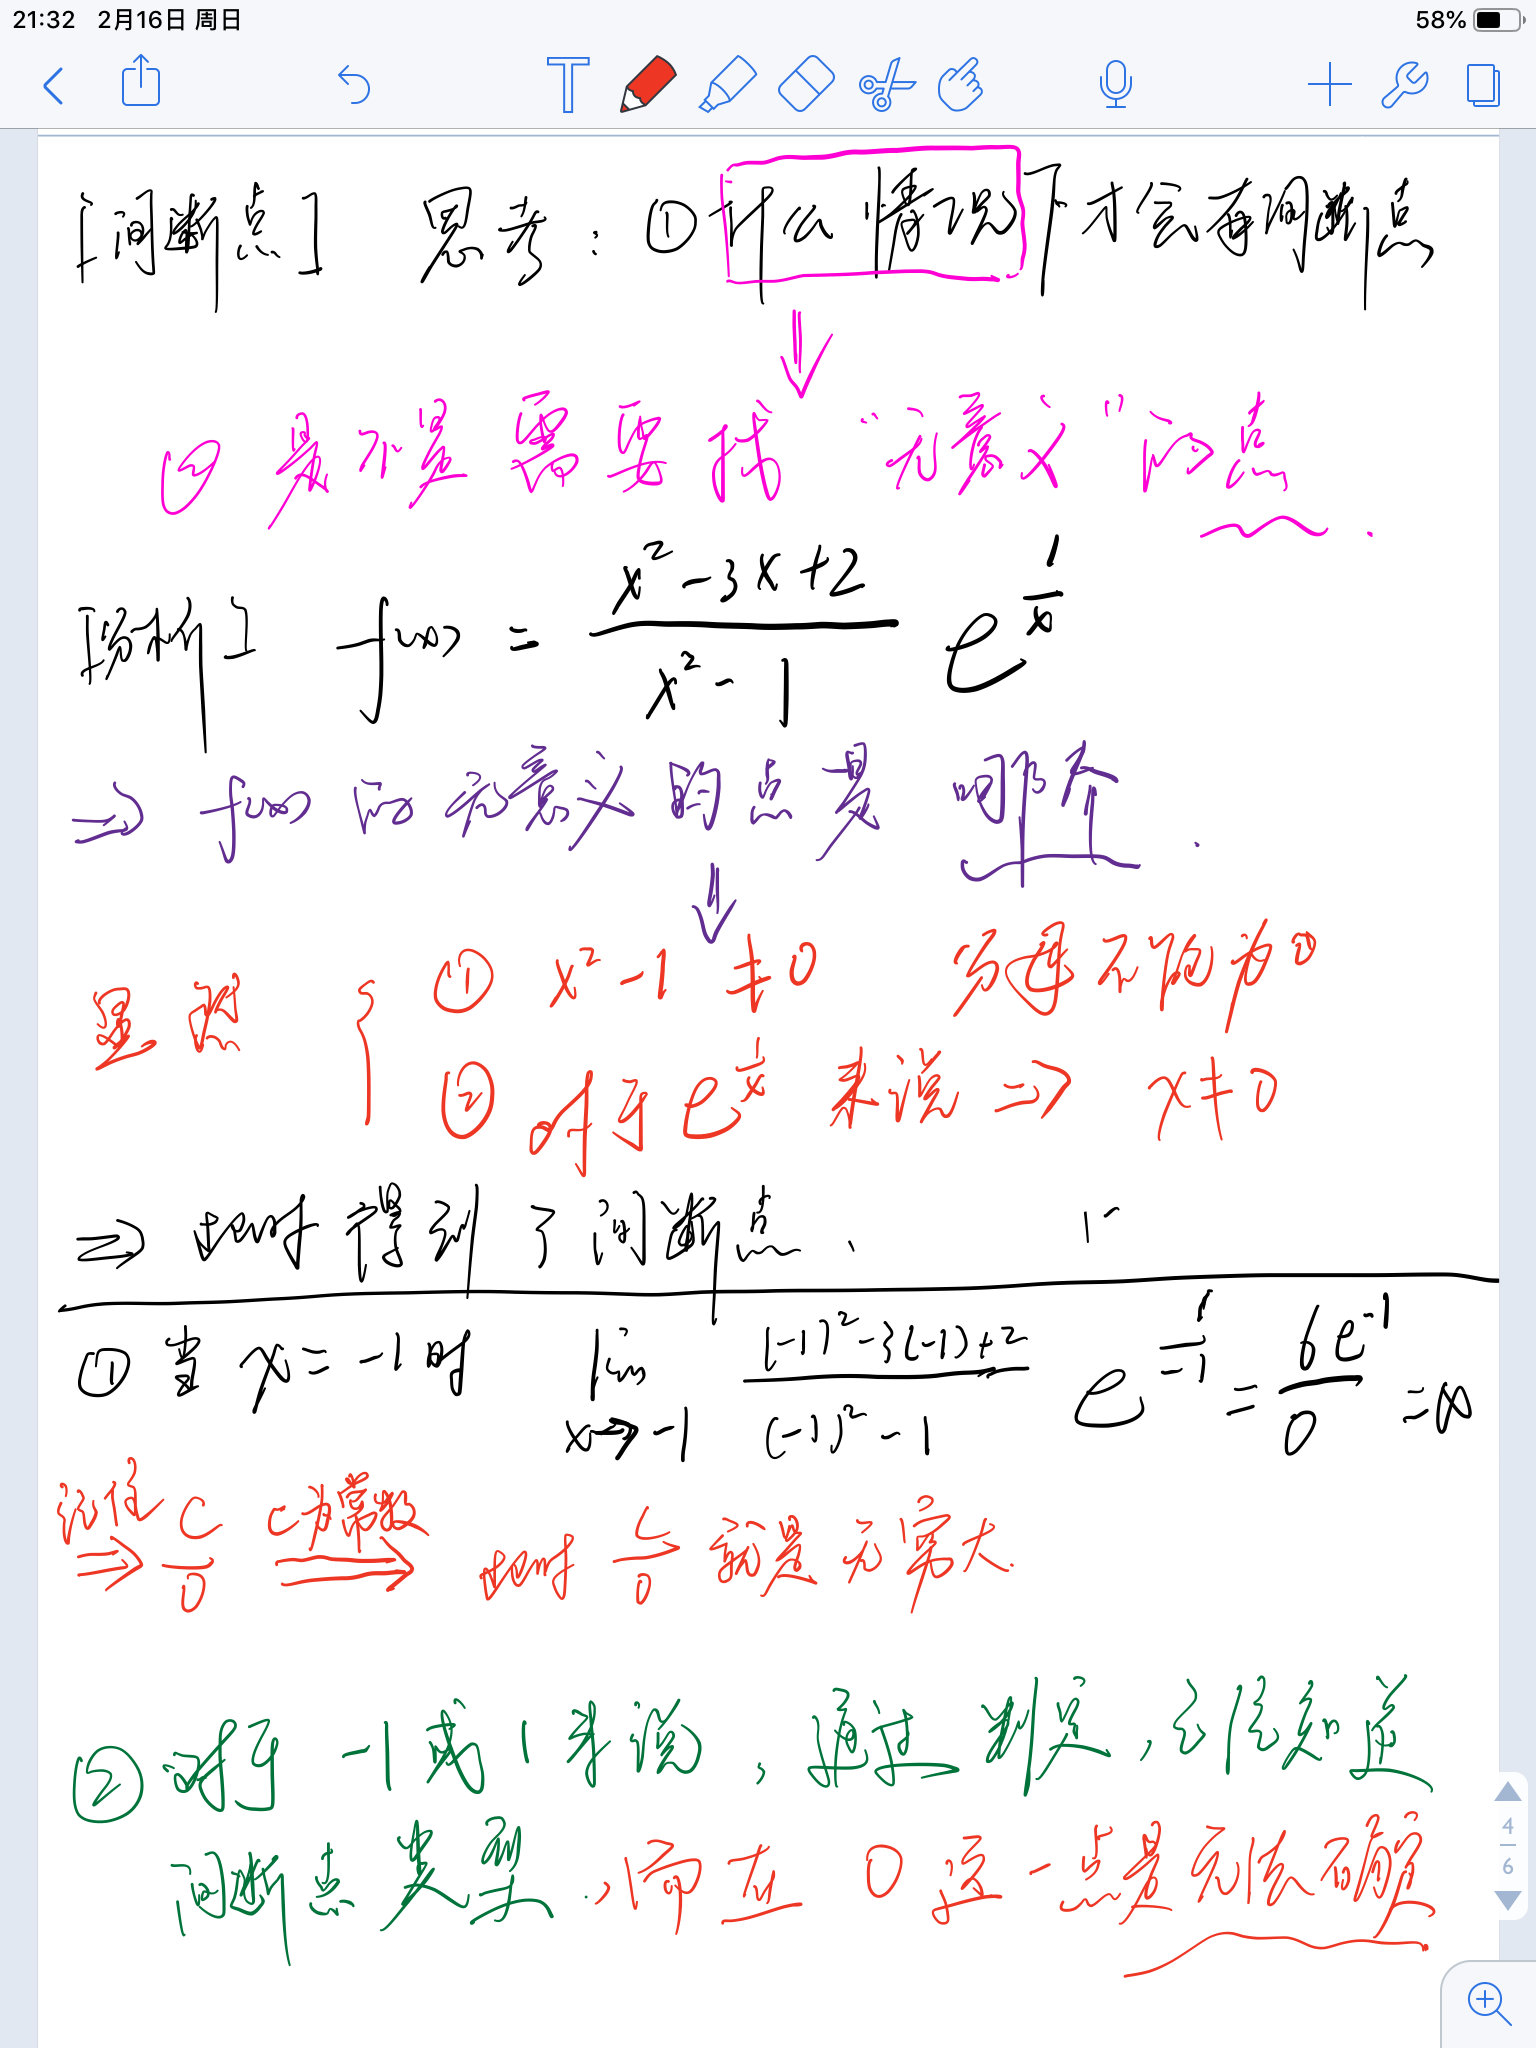 21:32 2月16日 周日 58%
[间断点] 思考：① 什么情况下才会有间断点
② 是不是需要找“无意义”的点.
[分析] f(x) = \frac{x²-3x+2}{x²-1} e^{\frac{1}{x}}
⇒ f(x) 的无意义的点是哪个.
显然 { ① x²-1≠0 分母不能为0
② 对于 e^{\frac{1}{x}} 来说 ⇒ x≠0
⇒ 此时得到了间断点.
① 当 x=-1时 lim_{x→-1} \frac{(-1)²-3(-1)+2}{(-1)²-1} e^{\frac{1}{-1}} = \frac{6e^{-1}}{0} = ∞
记住 ⇒ \frac{C}{0} C为常数 ⇒ 此时 \frac{C}{0} 就是无穷大.
② 对于 -1或1来说，通过判定，已经知道
间断点类型.，而在 0 这一点是无法确定
4
6